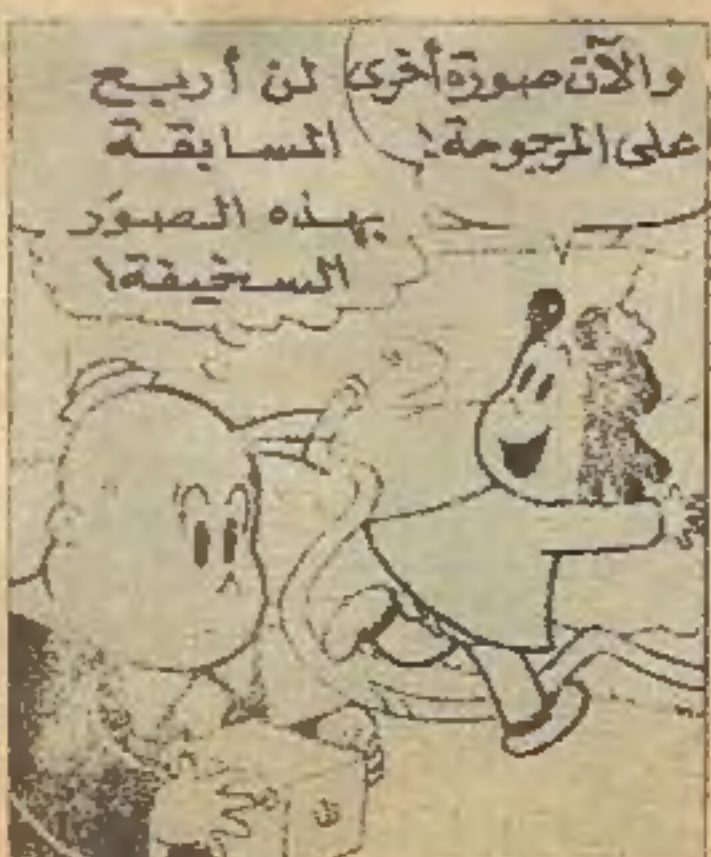 والآن صورة أخرى
على المرجوحة!
لن أربح
المسابقة
بهذه الصوَر
السخيفة!